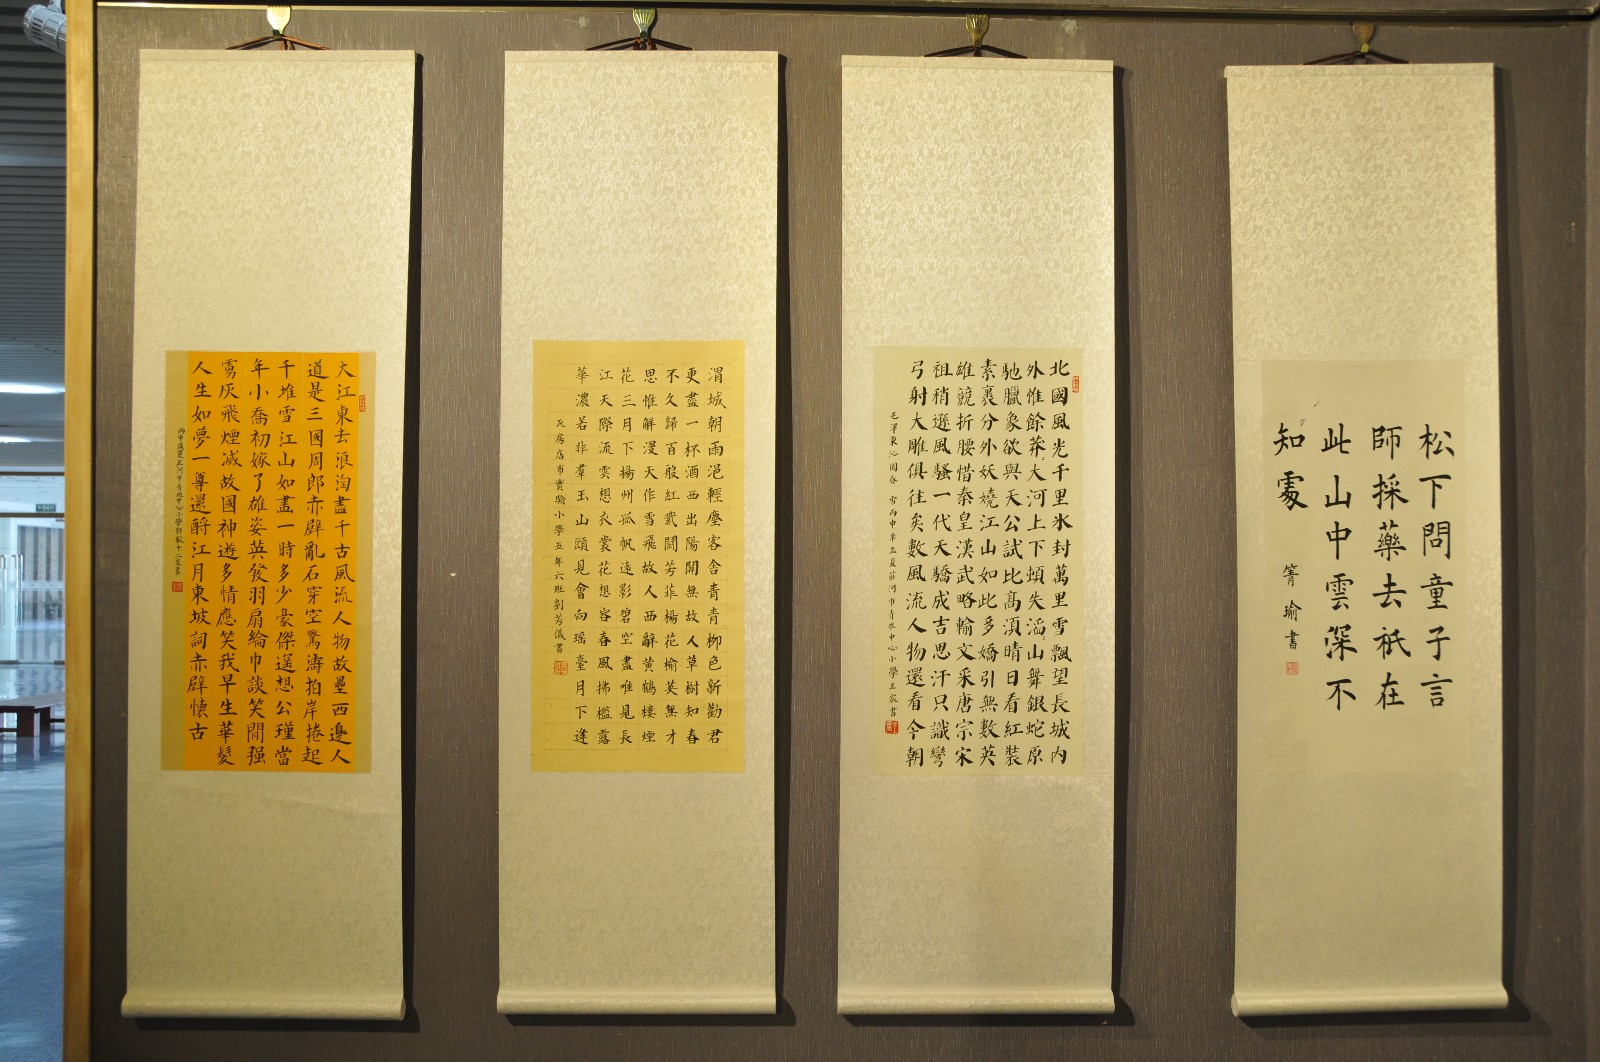 松下問童子言
師採藥去衹在
此山中雲深不
知處
箐瑜書
北國風光千里氷封萬里雪飄望長城内
外惟餘莽大河上下頓失滔山舞銀蛇原
馳臘象欲與天公試比高須晴日看紅裝
素裹分外妖嬈江山如此多嬌引無數英
雄競折腰惜秦皇漢武略輸文采唐宗宋
祖稍遜風騷一代天驕成吉思汗只識彎
弓射大雕俱往矣數風流人物還看今朝
毛澤東沁園春 雪丙申年孟夏莊河市青堆中心小學王宸書
渭城朝雨浥輕塵客舍青青柳色新勸君
更盡一杯酒西出陽關無故人草樹知春
不久歸百般紅紫鬪芳菲楊花榆莢無才
思惟解漫天作雪飛故人西辭黄鶴樓煙
花三月下揚州孤帆遠影碧空盡唯見長
江天際流雲想衣裳花想容春風拂檻露
華濃若非羣玉山頭見會向瑶臺月下逢
瓦房店市實驗小學五年六班劉芳儀書
大江東去浪淘盡千古風流人物故壘西邊人
道是三國周郎赤壁亂石穿空驚濤拍岸捲起
千堆雪江山如畫一時多少豪傑遥想公瑾當
年小喬初嫁了雄姿英發羽扇綸巾談笑間强
虜灰飛煙滅故國神遊多情應笑我早生華髮
人生如夢一尊還酹江月東坡詞赤壁懷古
丙申孟夏莊河市青堆中心小學十二歲書